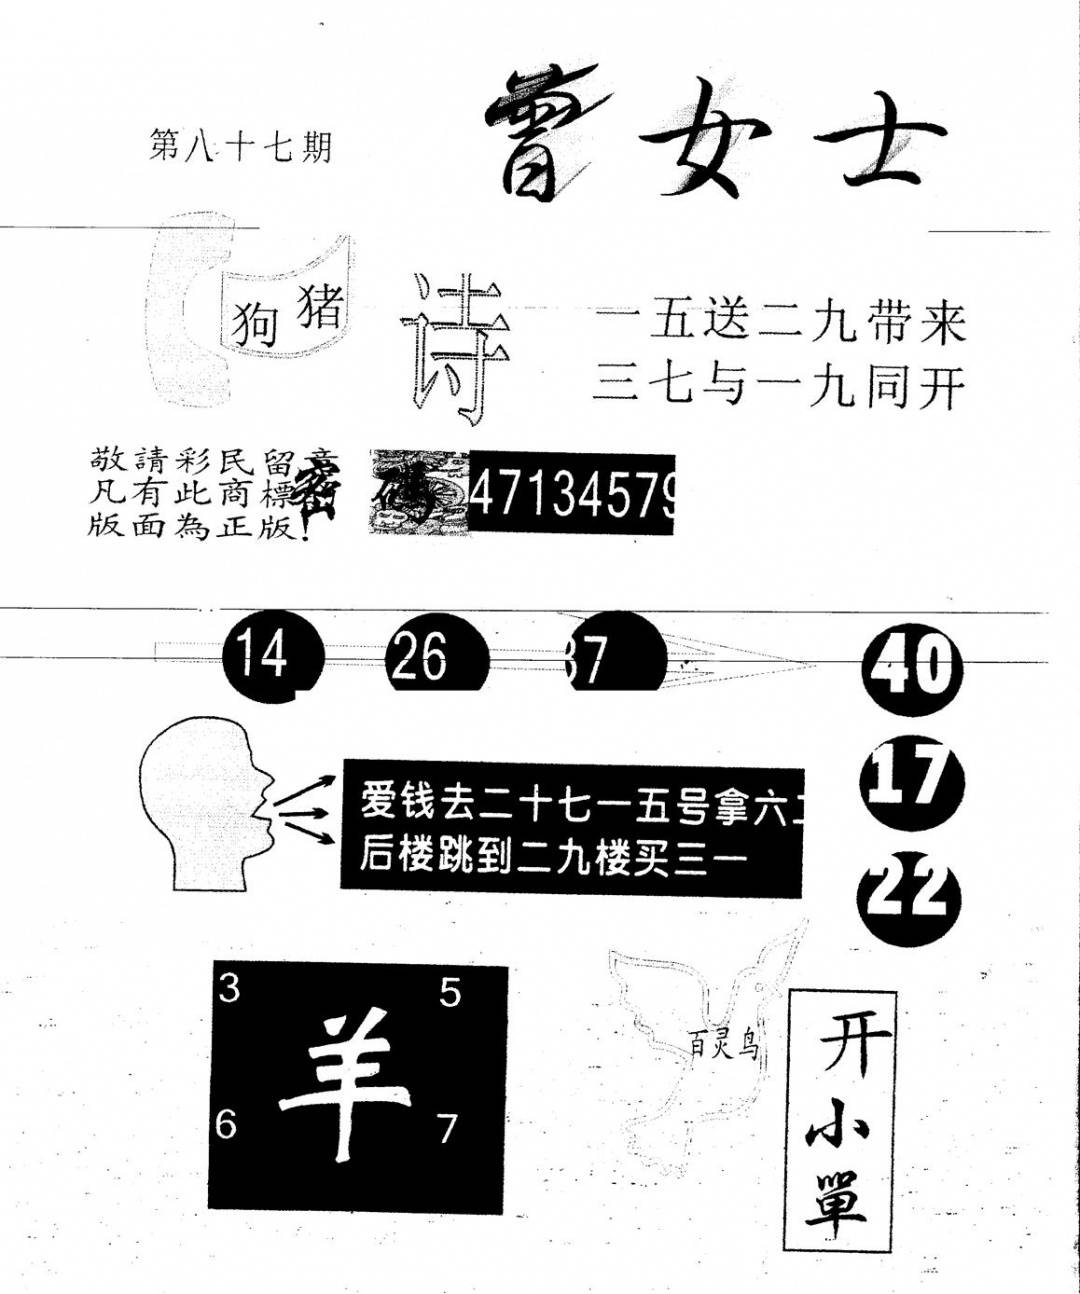 曾女士
第八十七期
狗 猪
诗
一五送二九带来
三七与一九同开
敬請彩民留意
凡有此商標
版面為正版!
密 碼 47134579
14 26 37
40
17
22
爱钱去二十七一五号拿六二
后楼跳到二九楼买三一
3 5
羊
6 7
百灵鸟
开小單